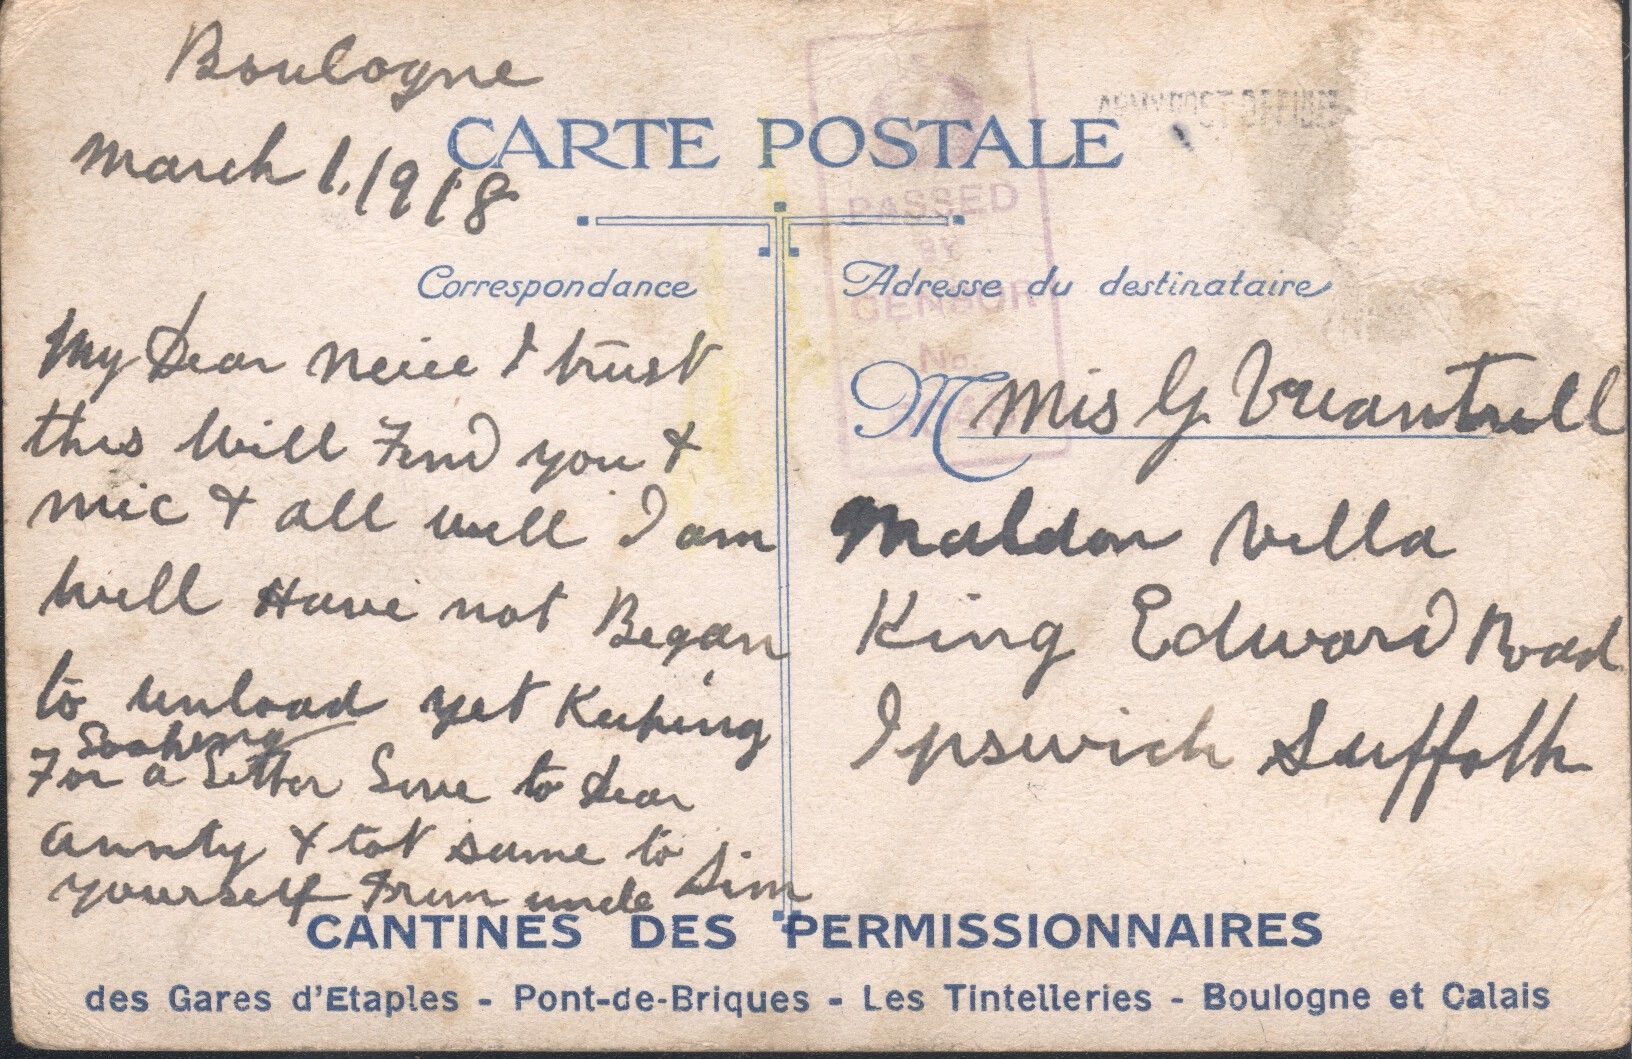 Boulogne
March 1. 1918
CARTE POSTALE
PASSED
BY
CENSOR
No.
ARMY POST OFFICE
Correspondance
My Dear Neice I trust
this Will Find you &
mic & all well I am
Well Have not Began
to unload yet Keeping
Looking
For a Letter Love to dear
annty & tot same to
yourself From uncle Sim
Adresse du destinataire
M Mis G
Maldon Villa
King Edward Road
Ipswich Suffolk
CANTINES DES PERMISSIONNAIRES
des Gares d'Etaples - Pont-de-Briques - Les Tintelleries - Boulogne et Calais